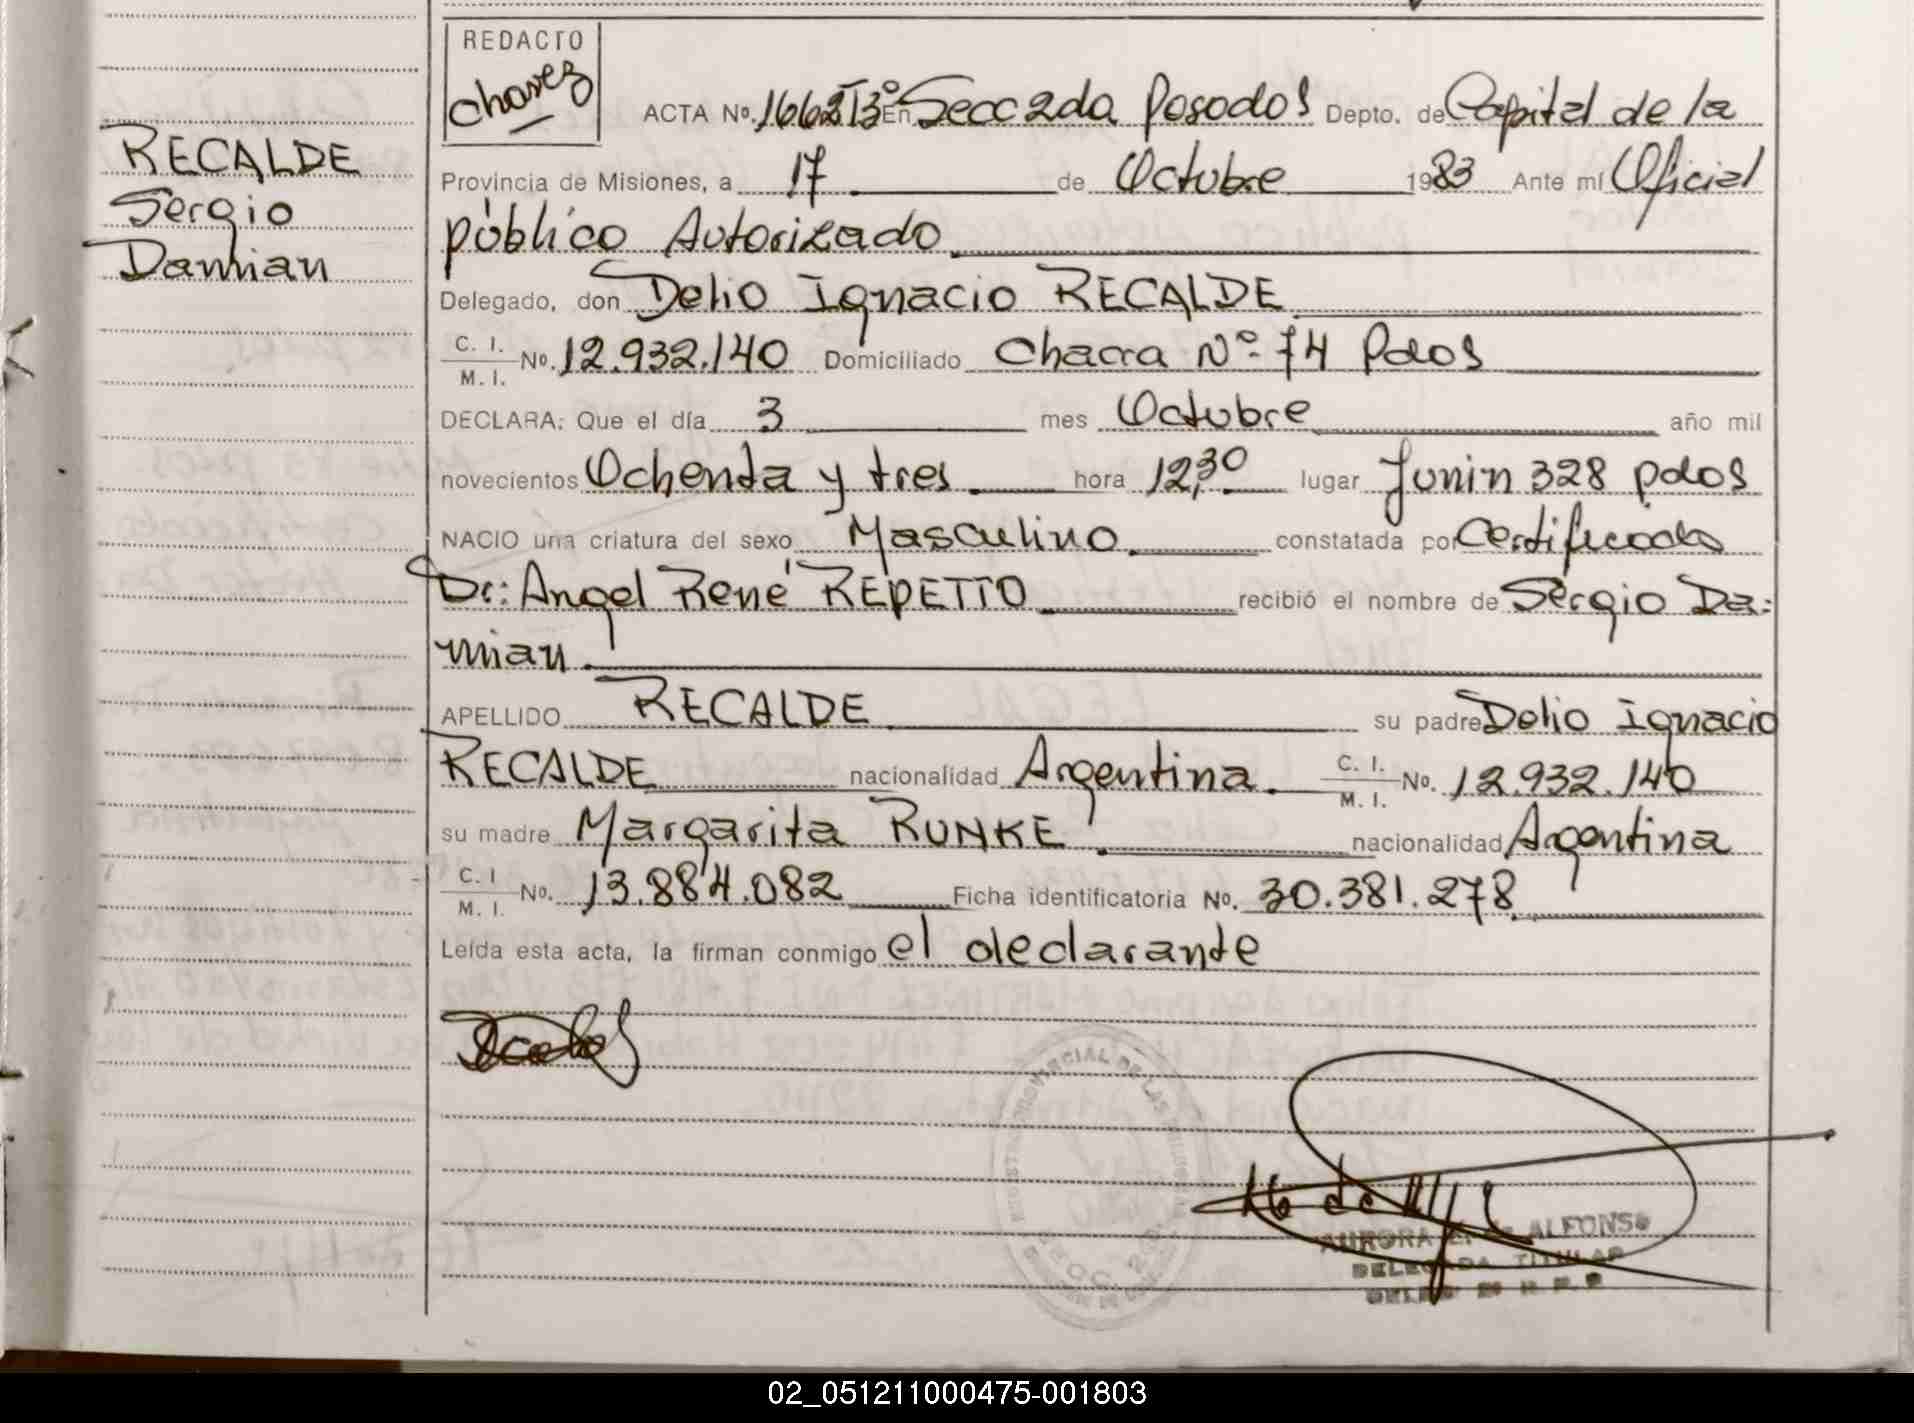 REDACTO
Chavez
ACTA No. 1662 Iº En Secc 2da Posadas Depto. de Capital de la
RECALDE
Sergio
Damian
Provincia de Misiones, a 17 de Octubre 1983 Ante mí Oficial
público Autorizado
Delegado, don Delio Ignacio RECALDE
C. I.
M. I. No. 12.932.140 Domiciliado Chacra Nº 74 Pdas
DECLARA: Que el día 3 mes Octubre año mil
novecientos Ochenta y tres hora 12,30 lugar Junin 328 pdas
NACIO una criatura del sexo Masculino constatada por Certificado
Dr: Angel René REPETTO recibió el nombre de Sergio Da=
mian
APELLIDO RECALDE su padre Delio Ignacio
RECALDE nacionalidad Argentina. C. I.
M. I. No. 12.932.140
su madre Margarita RUNKE nacionalidad Argentina
C. I
M. I. No. 13.884.082 Ficha identificatoria No. 30.381.278
Leída esta acta, la firman conmigo el declarante
REGISTRO PROVINCIAL DE LAS PERSONAS
SECC. 2da
AURORA E. ALFONSO
DELEGADA TITULAR
02_051211000475-001803